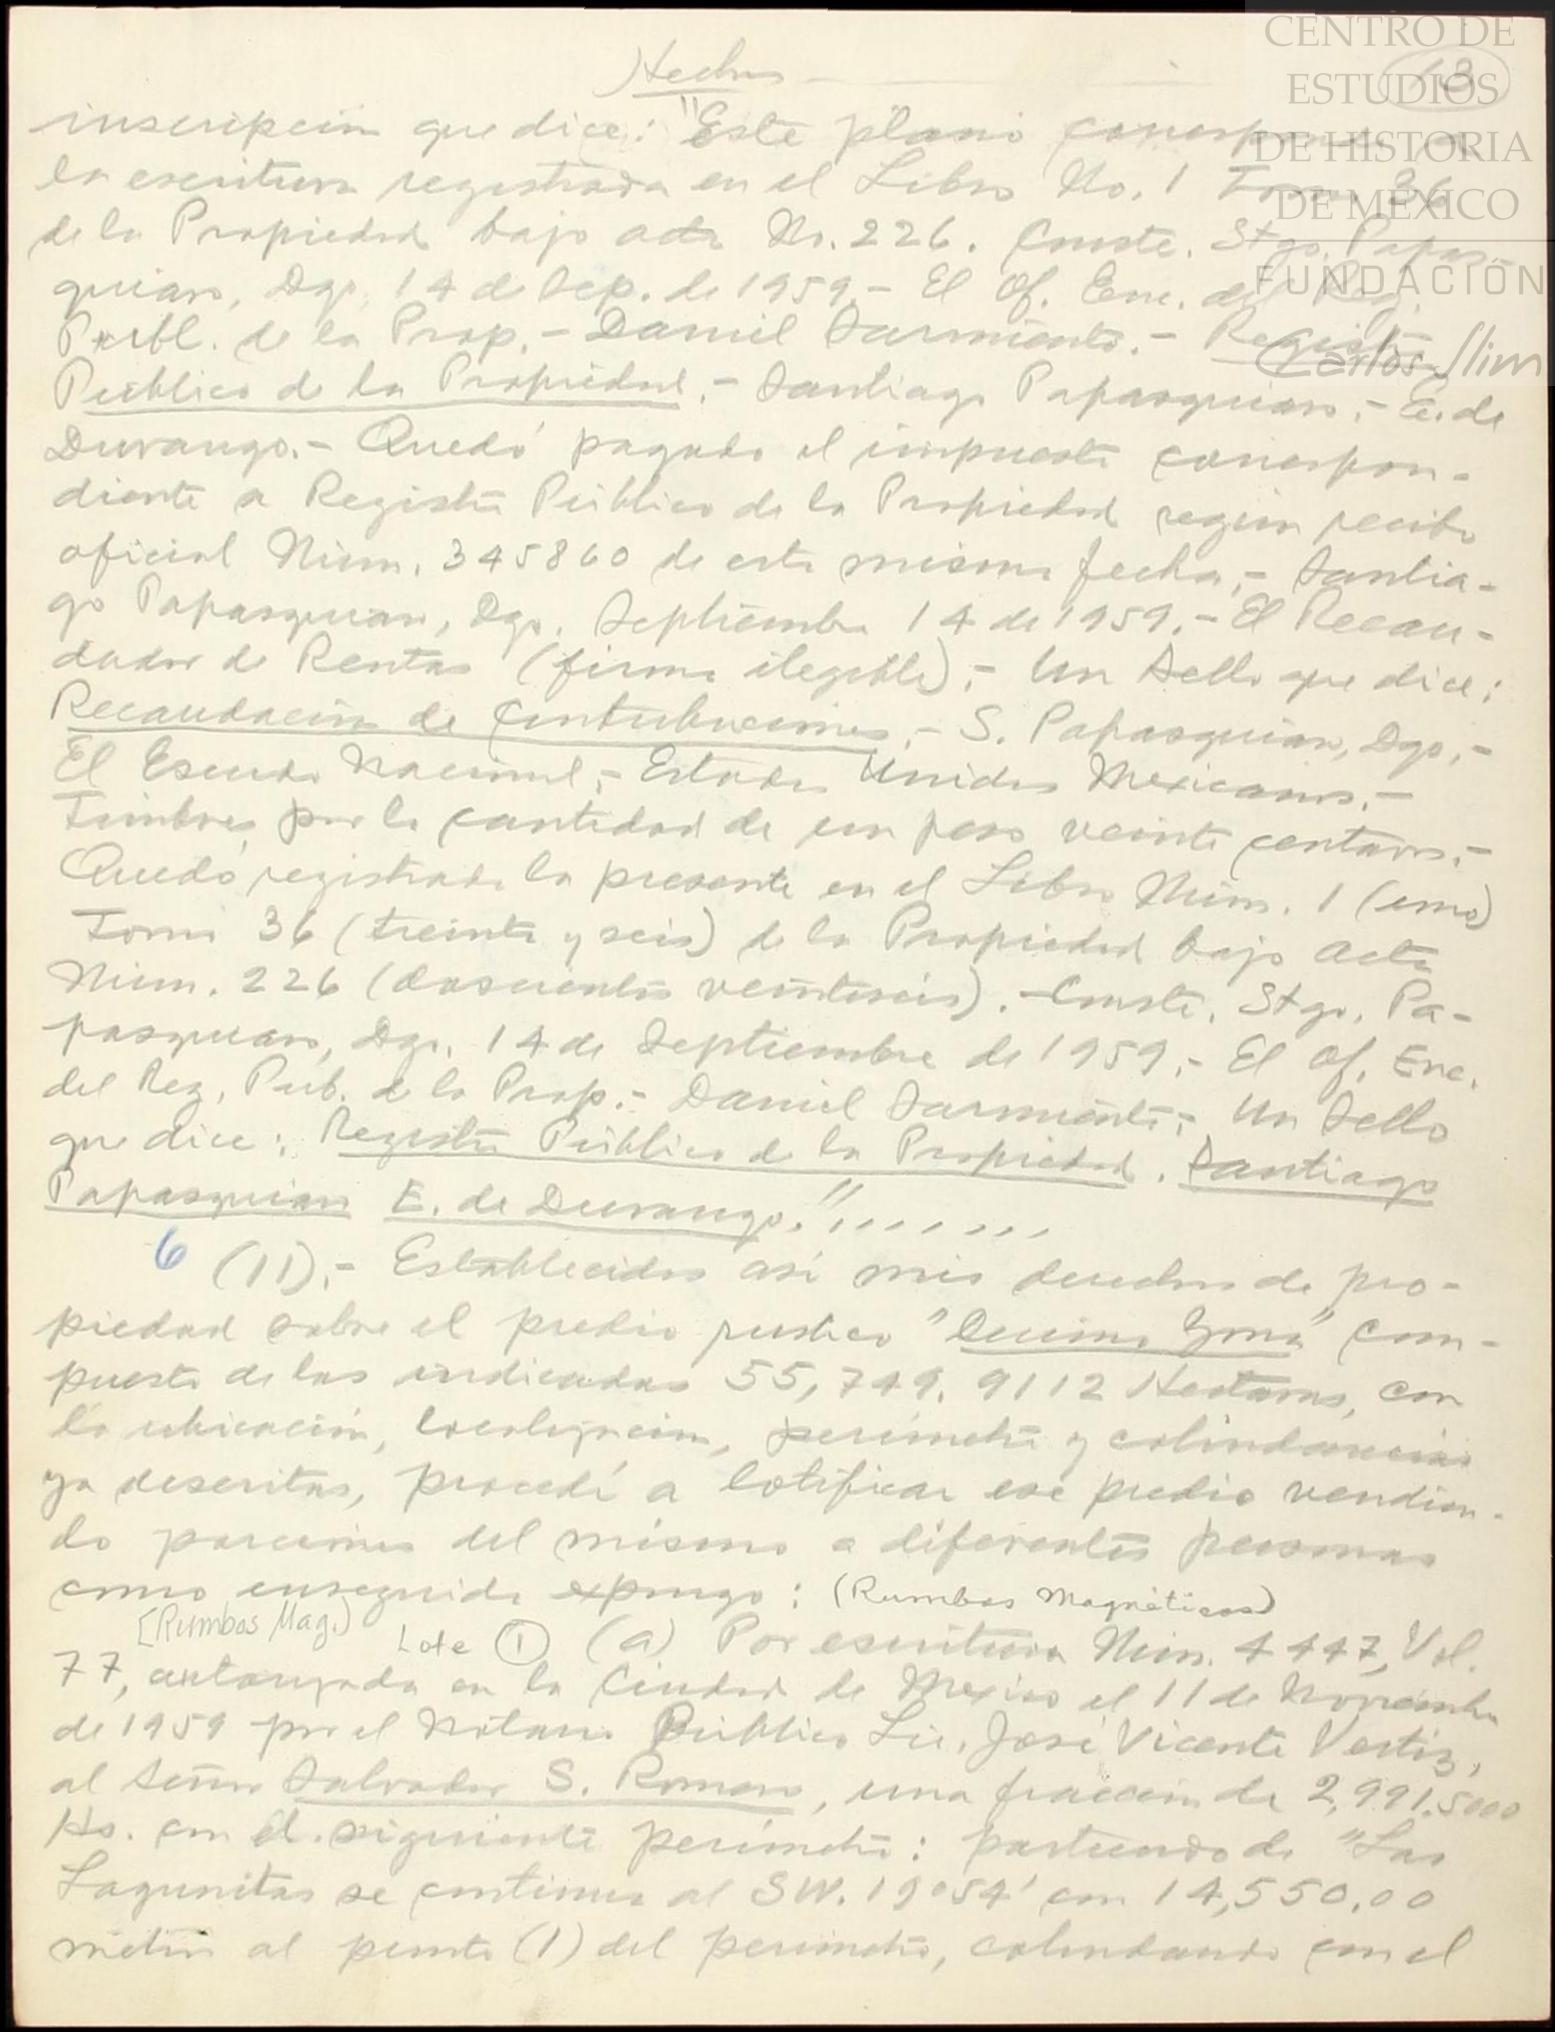 Hechos
13
inscripción que dice: "Este plano corresponde a
la escritura registrada en el Libro No. 1 Tomo 36
de la Propiedad bajo acta No. 226. Conste. Stgo. Papas-
quiaro, Dgo. 14 de Sep. de 1959.- El Of. Enc. del Reg.
Publ. de la Prop.- Daniel Sarmiento.- Registro
Público de la Propiedad.- Santiago Papasquiaro.- E. de
Durango.- Quedó pagado el impuesto correspon-
diente a Registro Público de la Propiedad según recibo
oficial Núm. 345860 de esta misma fecha.- Santia-
go Papasquiaro, Dgo. Septiembre 14 de 1959.- El Recau-
dador de Rentas (firma ilegible).- Un Sello que dice:
Recaudación de Contribuciones.- S. Papasquiaro, Dgo.-
El Escudo Nacional.- Estados Unidos Mexicanos.-
Timbres por la cantidad de un peso veinte centavos.-
Quedó registrada la presente en el Libro Núm. 1 (uno)
Tomo 36 (treinta y seis) de la Propiedad bajo acta
Núm. 226 (doscientos veintiseis).- Conste. Stgo. Pa-
pasquiaro, Dgo. 14 de Septiembre de 1959.- El Of. Enc.
del Reg. Pub. de la Prop.- Daniel Sarmiento.- Un Sello
que dice: Registro Público de la Propiedad. Santiago
Papasquiaro E. de Durango." ......
6 (11).- Establecidos así mis derechos de pro-
piedad sobre el predio rustico "Decima Zona" com-
puesto de las indicadas 55,749.9112 Hectaras, con
la ubicación, localización, perímetro y colindancias
ya descritas, procedí a lotificar ese predio vendien-
do porciones del mismo a diferentes personas
como enseguida expongo: (Rumbos Magnéticos)
[Rumbos Mag.) Lote (1) (a) Por escritura Núm. 4447, Vol.
77, otorgada en la Ciudad de Mexico el 11 de Noviembre
de 1959 por el Notario Público Lic. José Vicente Vertiz,
al Señor Salvador S. Romero, una fracción de 2,991.5000
Hs. con el siguiente perímetro: partiendo de "Las
Lagunitas se continua al SW. 19°54' con 14,550.00
metros al punto (1) del perímetro, colindando con el
CENTRO DE
ESTUDIOS
DE HISTORIA
DE MÉXICO
FUNDACIÓN
Carlos Slim